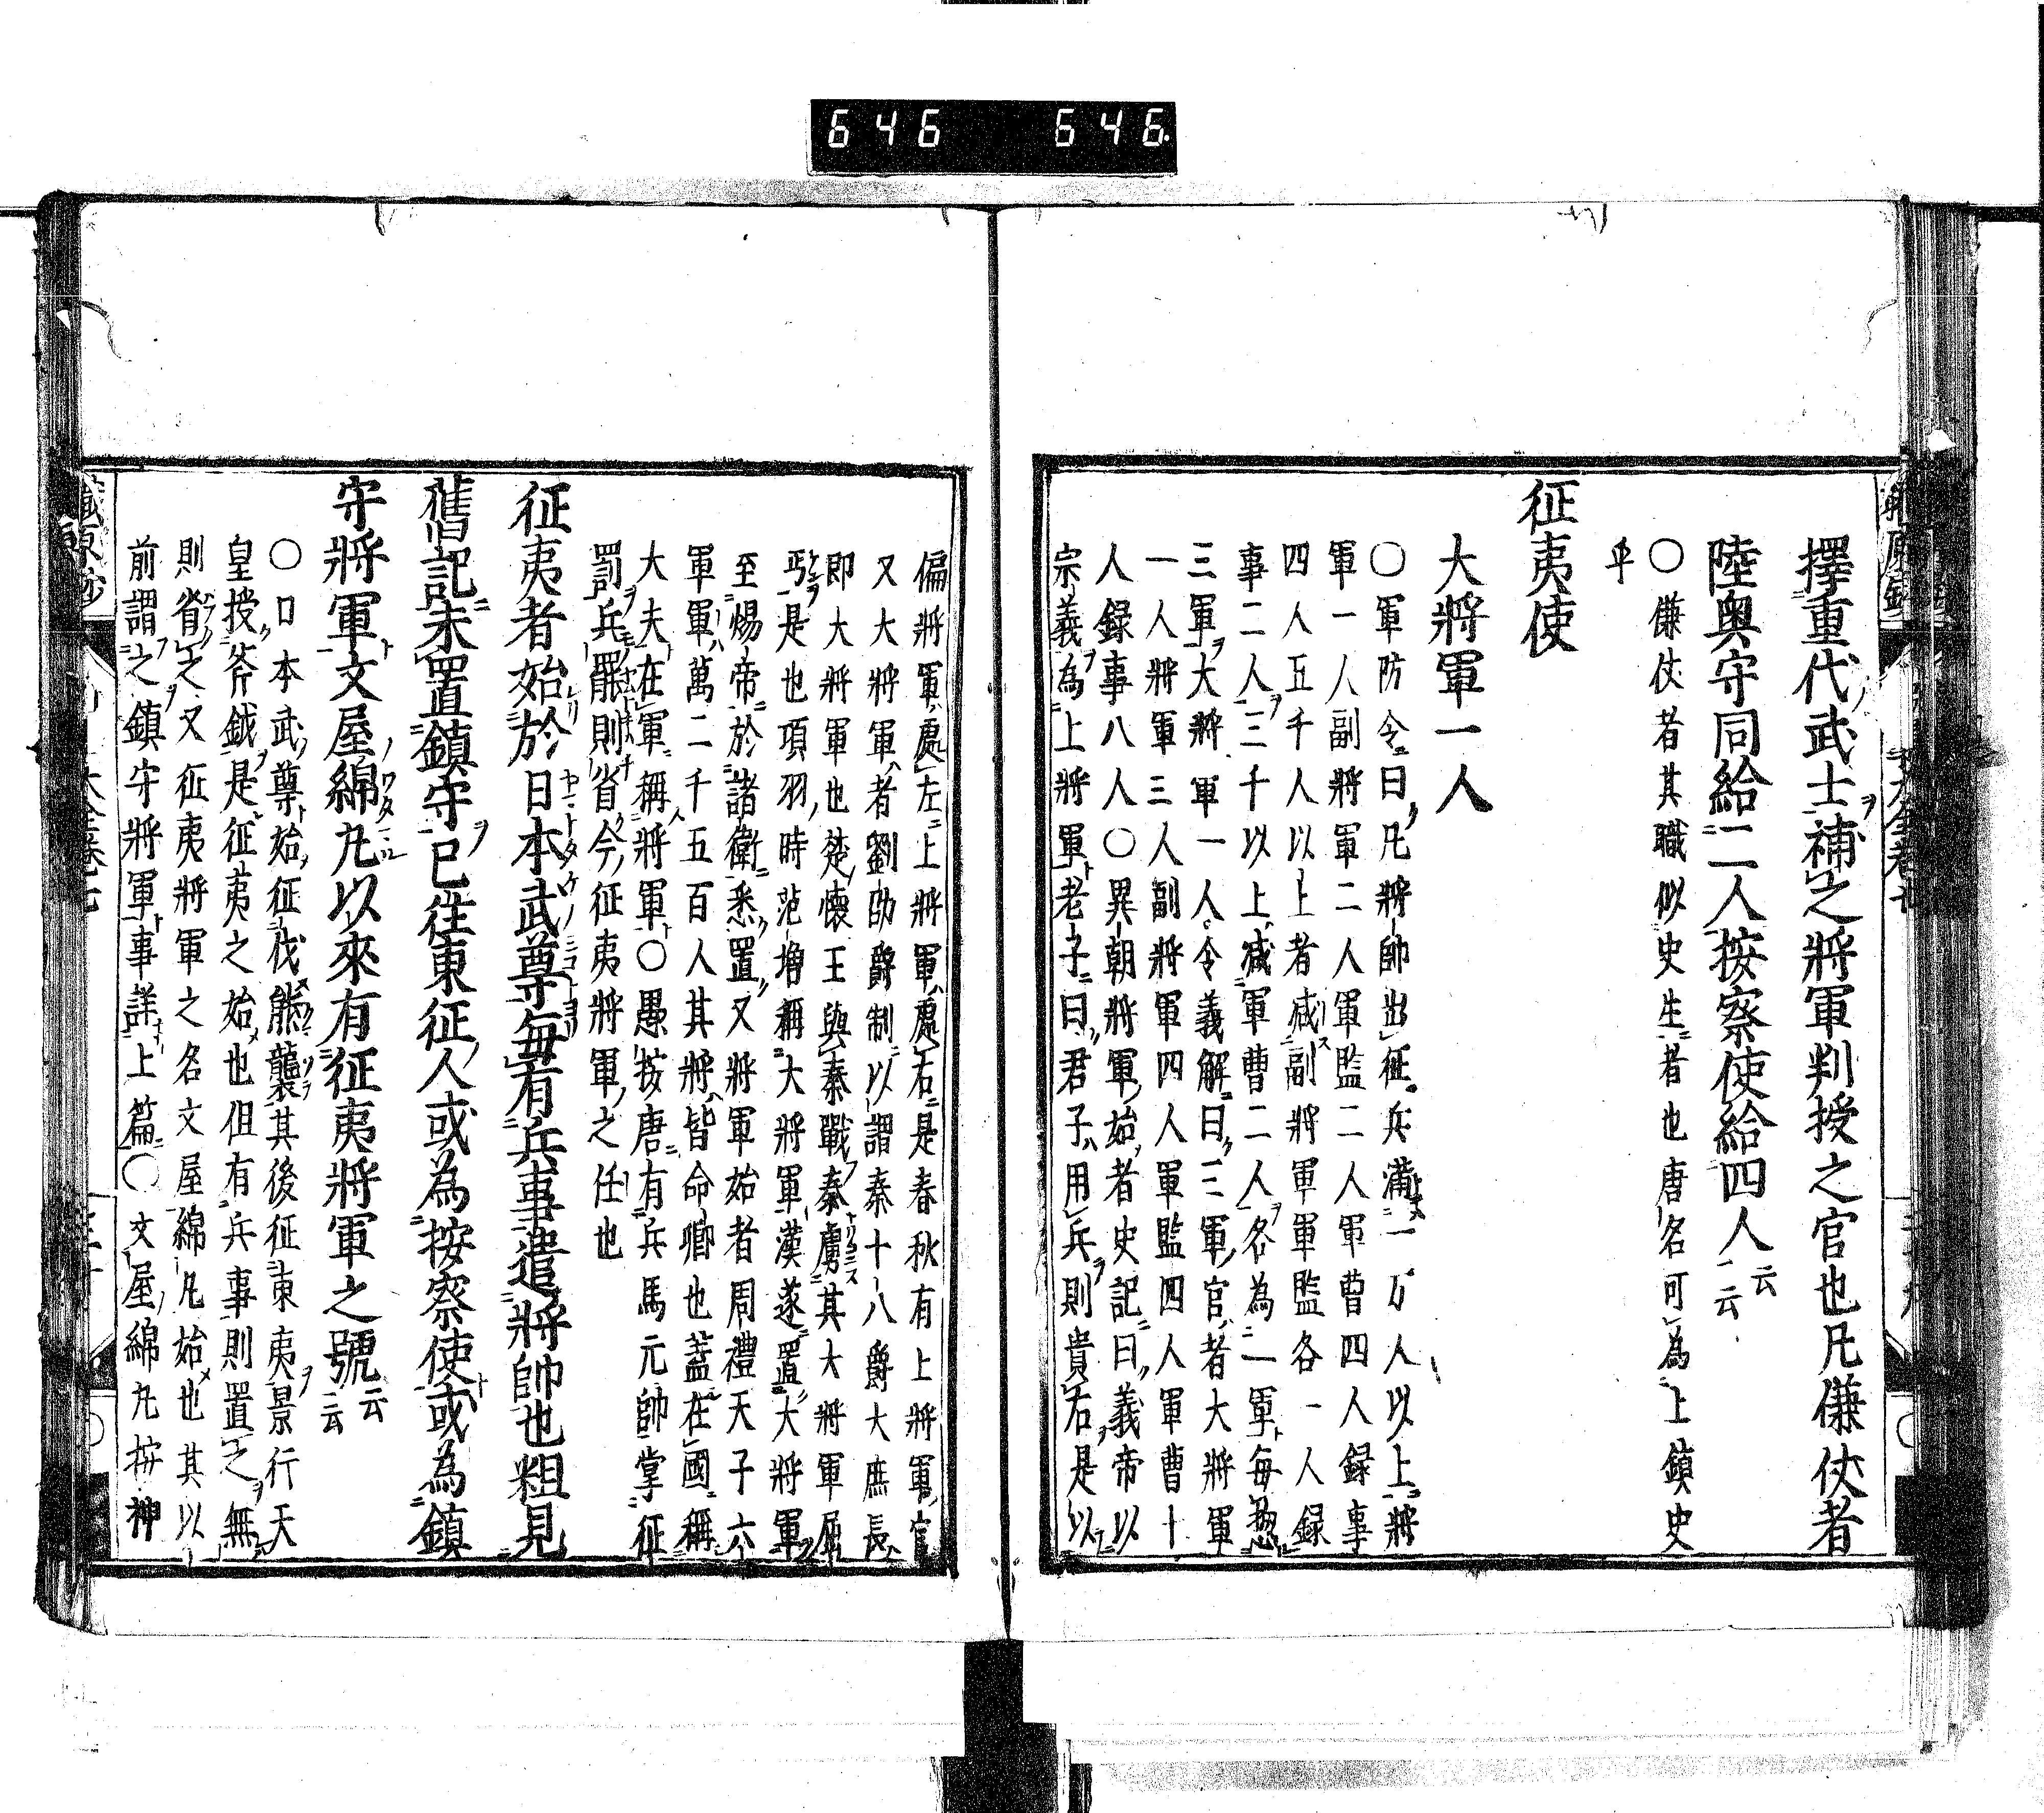 646 646
擇重代武士補之將軍判授之官也凡傔仗者
陸奥守同給二人按察使給四人云云
○傔仗者其職似史生者也唐名可為上鎮史
乎
征夷使
大將軍一人
○軍防令曰凡將帥出征兵満一万人以上將
軍一人副將軍二人軍監二人軍曹四人録事
四人五千人以上者減副將軍軍監各一人録
事二人三千以上減軍曹二人各為一軍毎惣
三軍大將軍一人令義解曰三軍官者大將軍
一人將軍三人副將軍四人軍監四人軍曹十
人録事八人○異朝將軍始者史記曰義帝以
宗義為上將軍老子曰君子用兵則貴右是以
偏將軍處左上將軍處右是春秋有上將軍官
又大將軍者劉劭爵制以謂秦十八爵大庶長
即大將軍也楚懐王與秦戰秦虜其大將軍屈
丐是也項羽時范増稱大將軍漢遂置大將軍
至惕帝於諸衛悉置又將軍始者周禮天子六
軍軍萬二千五百人其將皆命卿也蓋在國稱
大夫在軍稱將軍○愚按唐有兵馬元帥掌征
罰兵罷則省今征夷將軍之任也
征夷者始於日本武尊毎有兵事遣將帥也粗見
舊記未置鎮守已往東征人或為按察使或為鎮
守將軍文屋綿丸以來有征夷將軍之號云云
○日本武尊始征伐熊襲其後征東夷景行天
皇授斧鉞是征夷之始也但有兵事則置之無
則省之又征夷將軍之名文屋綿丸始也其以
前謂之鎮守將軍事詳上篇○文屋綿丸按神